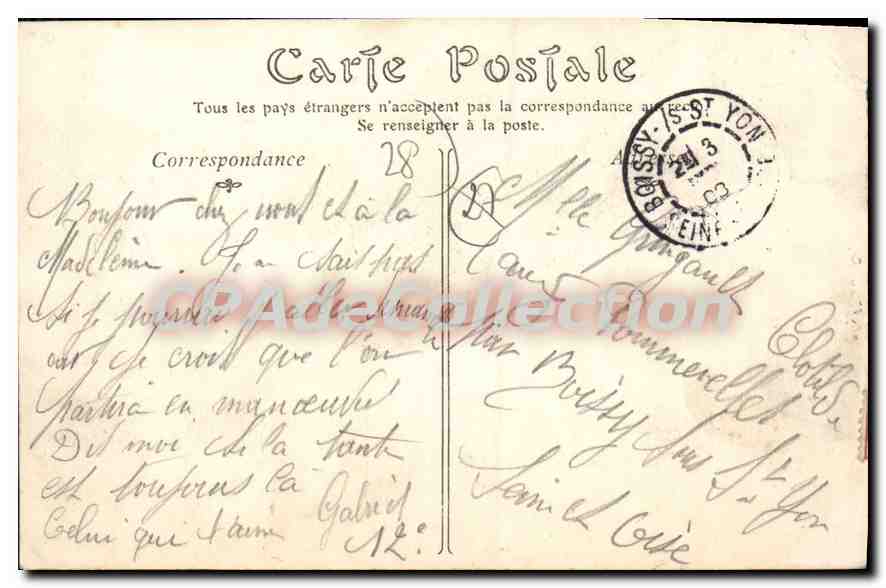 Carte Postale
Tous les pays étrangers n'acceptent pas la correspondance au recto
Se renseigner à la poste.
Correspondance
28
27
BOISSY-/S ST YON
3
SEINE
CPAdeCollection
Bonjour chez nous et à la
Madeleine. Je ne sais pas
si je pourrai aller
je crois que l'on
partira en manœuvres
Dis moi si la tante
est toujours là
Celui qui t'aime Gabriel
12e
Melle
Clotilde
Boissy sous St Yon
Seine et Oise